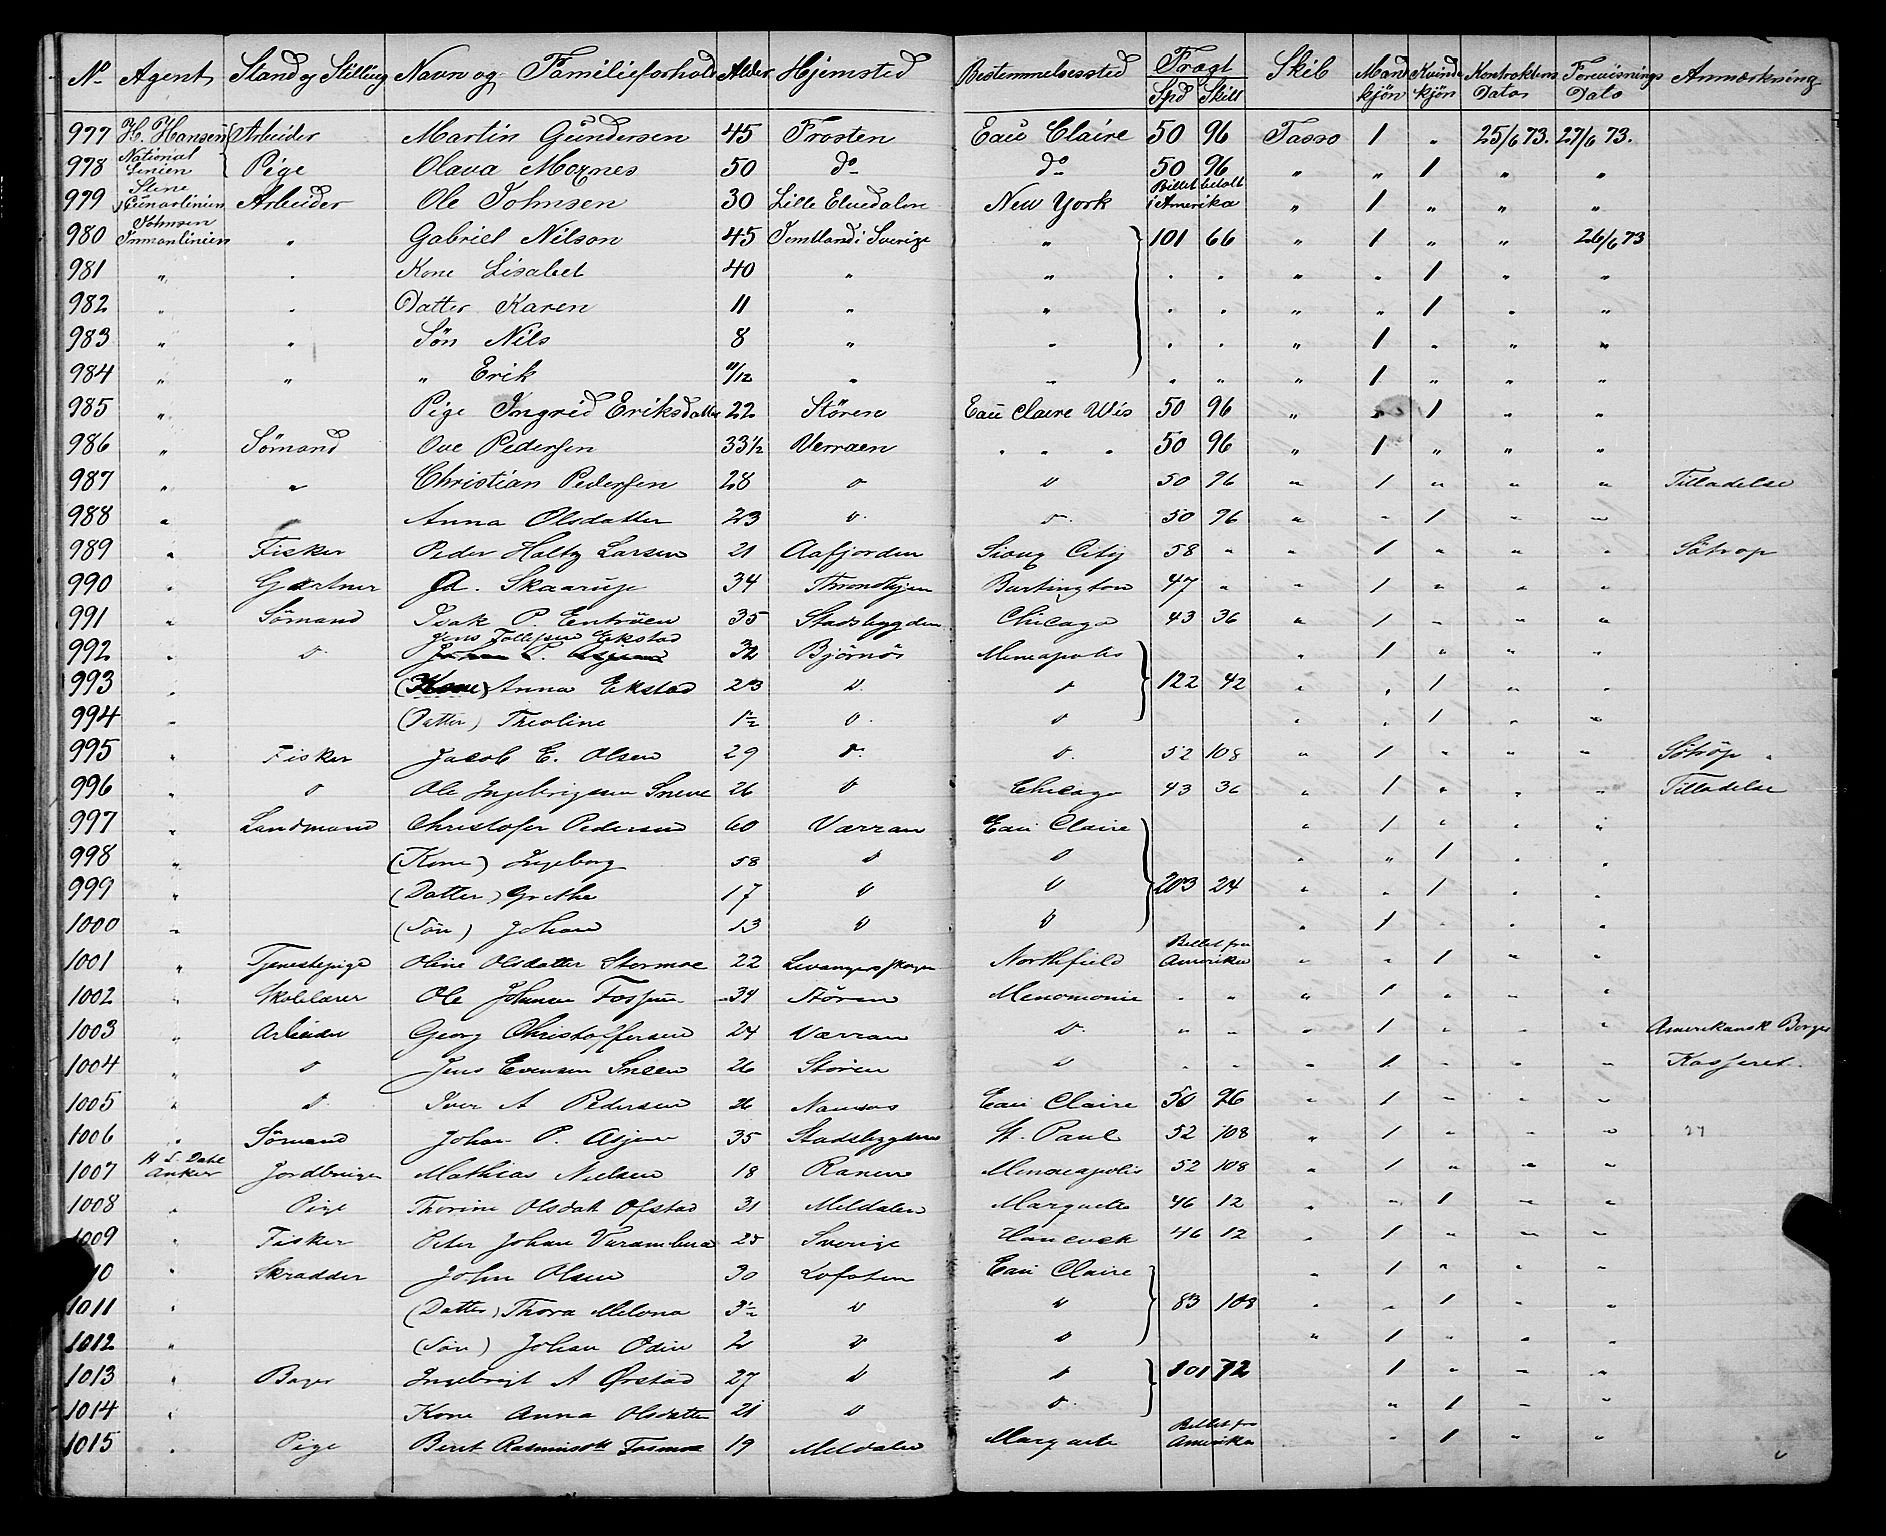 No Agent Stand og Stilling Navn og Familieforhold Alder Hjemsted Bestemmelsessted Fragt Spd Skill Skib Mandkjön Kvindekjön Kontraktens Dato Forevisnings Dato Anmærkning
977 H. Hansen National Linien Arbeider Martin Gundersen 45 Frosten Eau Claire 50 96 Tasso 1 " 25/6 73. 27/6 73.
978 Pige Olava Moxnes 50 do do 50 96 " " 1 " "
979 Stene Cunardlinien Arbeider Ole Johnsen 30 Lille Elvedalen New York Billet betalt i Amerika " 1 " " "
980 Johnsen Inmanlinien " Gabriel Nilson 45 Jemtland i Sverige " 101 66 " 1 " " 26/6 73
981 " " Kone Lisabet 40 " " " " " " 1 " "
982 " " Datter Karen 11 " " " " " " 1 " "
983 " " Sön Nils 8 " " " " " 1 " " "
984 " " " Erik 11/12 " " " " " 1 " " "
985 " Pige Ingrid Eriksdatter 22 Stören Eau Claire Wis 50 96 " " 1 " "
986 " Sömand Ove Pedersen 33 1/2 Verraen " " " 50 96 " 1 " " "
987 " " Christian Pedersen 28 " " 50 96 " 1 " " " Tilladelse
988 " Anna Olsdatter 23 " " 50 96 " " 1 " "
989 " Fisker Peder Holtz Larsen 21 Aafjorden Sioux City 58 " " 1 " " " Sötrop
990 " Gartner A. Skaarup 34 Throndhjem Burlington 47 " " 1 " " "
991 " Sömand Isak P. Entröen 35 Stadsbygden Chicago 43 36 " 1 " " "
992 " " Jens Tollefsen Ekstad 32 Björnör Mineapolis " 1 " " "
993 " (Kone) Anna Ekstad 23 " " 122 42 " " 1 " "
994 " (Datter) Theoline 1 1/2 " " " " 1 " "
995 " Fisker Jacob E. Olsen 29 " " 52 108 " 1 " " " Sötröp "
996 " " Ole Ingebrigtsen Sneve 26 " Chicago 43 36 " 1 " " " Tilladelse
997 " Landmand Christofer Pedersen 60 Værran Eau Claire " 1 " " "
998 " (Kone) Ingeborg 58 " " " " 1 " "
999 " (Datter) Grethe 17 " " 203 24 " " 1 " "
1000 " (Sön) Johan 13 " " " 1 " " "
1001 " Tjenestepige Oline Olsdatter Stormoe 22 Levangerskogen Northfield Billet fra Amerika " " 1 " "
1002 " Skolelærer Ole Johnsen 34 Stören Menomonie " " " 1 " " "
1003 " Arbeider Georg Christoffersen 24 Værran " " " " 1 " " " Amerikansk Borger
1004 " " Jens Evensen Sneen 26 Stören " " " " 1 " " " Kasseret.
1005 " " Iver A Pedersen 26 Namsos Eau Claire 50 96 " 1 " " "
1006 " Sömand Johan P. Asjem 35 Stadsbygden St. Paul 52 108 " 1 " " "
1007 H L. Dahl Anker Jordbruger Mathias Nielsen 18 Ranen Mineapolis 52 108 " 1 " " "
1008 " Pige Thorine Olsdat Ofstad 31 Meldalen Marquette 46 12 " " 1 " "
1009 " Fisker Peter Johan 25 Sverige Hancock 46 12 " 1 " " "
10 " Skradder John Olsen 30 Lofoten Eau Claire " 1 " " "
1011 " (Datter) Thora Melona 3 1/2 " " 83 108 " " 1 " "
1012 " (Sön) Johan Odin 2 " " " 1 " " "
1013 " Bager Ingebrigt A Ørstad 27 " " 101 72 1 " " "
1014 " Kone Anna Olsdatter 21 " " " 1 " "
1015 " Pige Beret Rasmusdtt 19 Meldalen Marquette Billet fra Amerika " 1 " "